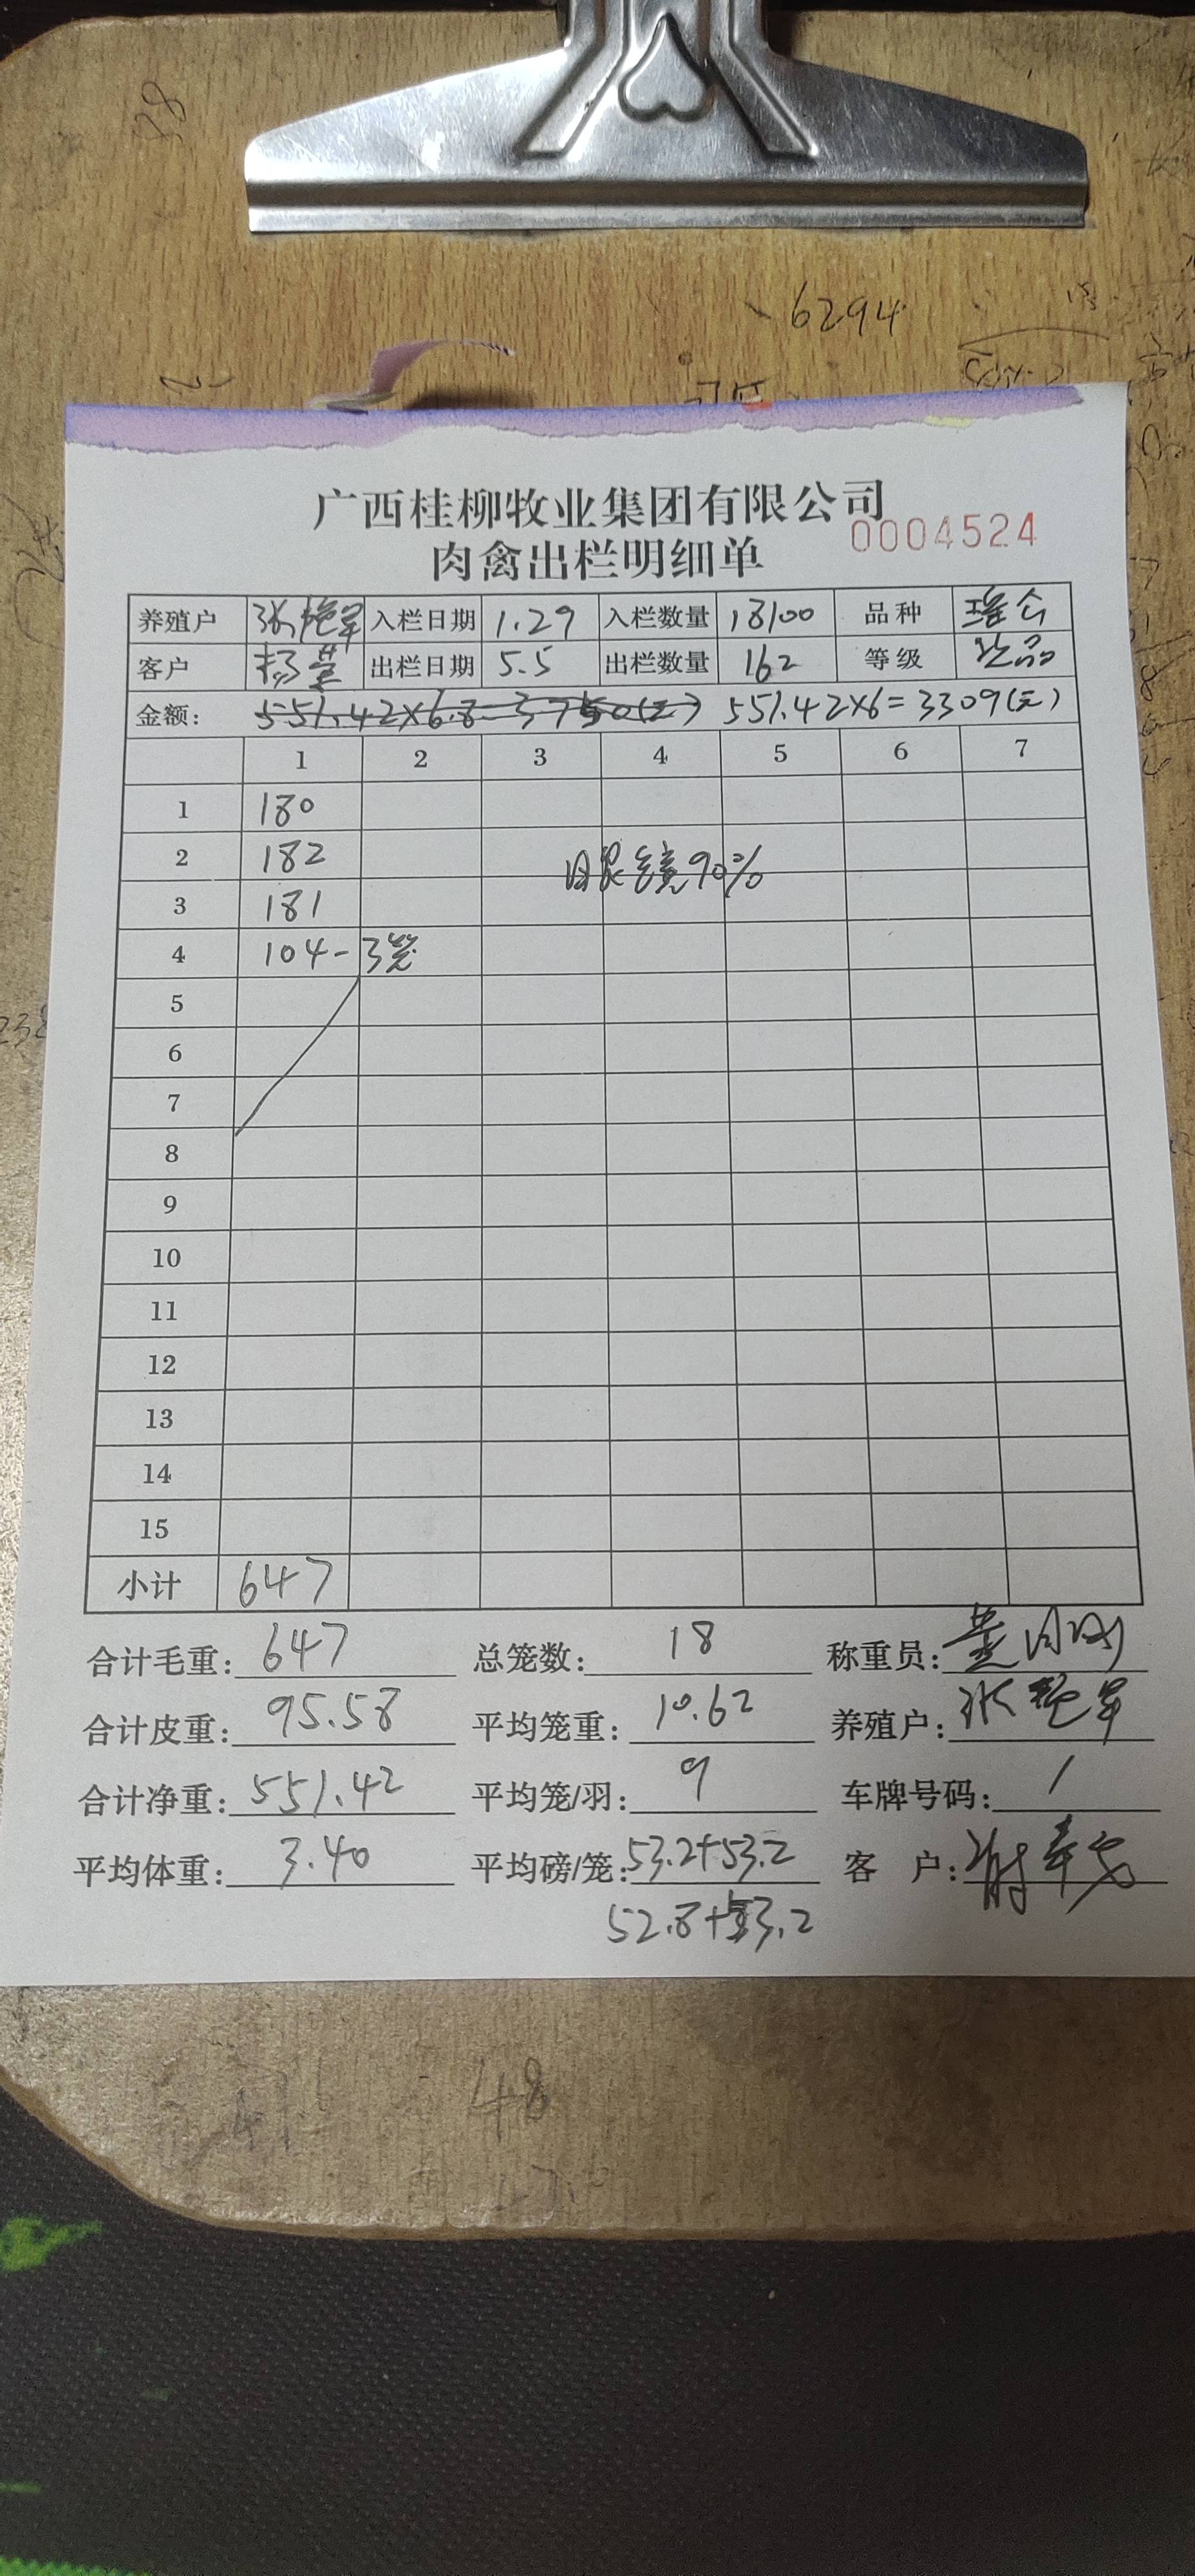 6294
广西桂柳牧业集团有限公司
0004524
肉禽出栏明细单
养殖户 入栏日期 1.29 入栏数量 18100 品种 瑶仑
客户 杨莹 出栏日期 5.5 出栏数量 162 等级 次品
金额: 551.42×6.8=3750(元) 551.42×6=3309(元)
1 2 3 4 5 6 7
1 180
2 182 戴眼镜90%
3 181
4 104-3笼
5
6
7
8
9
10
11
12
13
14
15
小计 647
合计毛重: 647 总笼数: 18 称重员:
合计皮重: 95.58 平均笼重: 10.62 养殖户:
合计净重: 551.42 平均笼/羽: 9 车牌号码: /
平均体重: 3.40 平均磅/笼: 53.2+53.2 客 户:
52.8+53.2
48